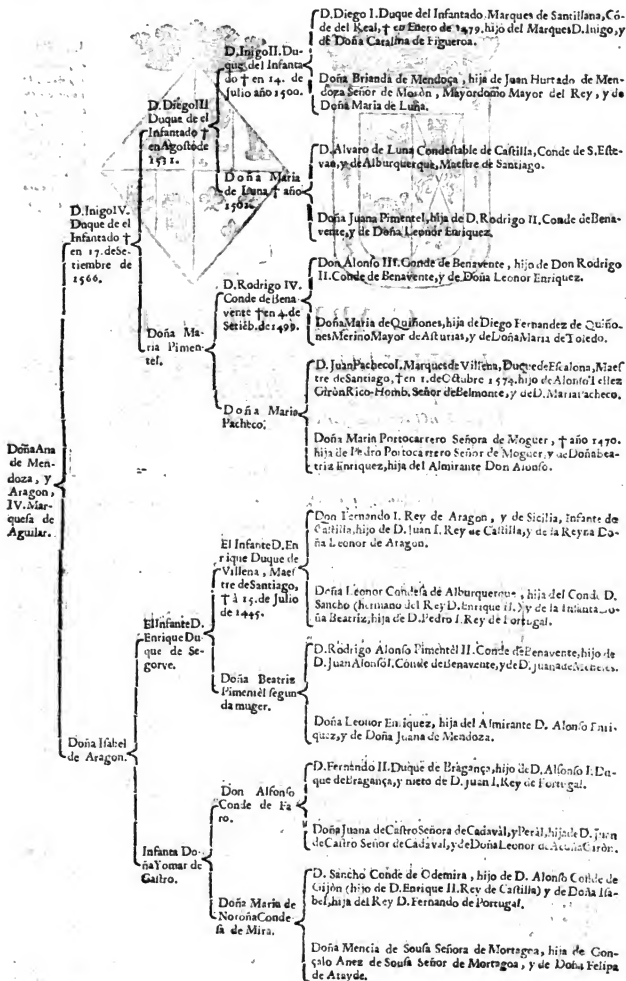 Doña Ana
de Men-
doza, y
Aragon,
IV. Mar-
quesa de
Aguilar.
D. Inigo IV.
Duque de el
Infantado †
en 17. de Se-
tiembre de
1566.
Doña Isabel
de Aragon.
D. Diego III
Duque de el
Infantado †
en Agosto de
1531.
Doña Ma-
ria Pimen-
tel.
El Infante D.
Enrique Du-
que de Se-
gorve.
Infanta Do-
ña Yomar de
Castro.
D. Inigo II. Du-
que del Infanta-
do † en 14. de
Julio año 1500.
Doña Maria
de Luna † año
D. Rodrigo IV.
Conde de Bena-
vente † en 4. de
Setiēb. de 1499.
Doña Maria
Pacheco.
El Infante D. En
rique Duque de
Villena, Maes
tre de Santiago,
† à 15. de Julio
de 1445.
Doña Beatriz
Pimentèl segun
da muger.
Don Alfonso
Conde de Fa
ro.
Doña Maria de
Noroña Conde
sa de Mira.
D. Diego I. Duque del Infantado, Marques de Santillana, Cō-
de del Real, † en Enero de 1479. hijo del Marques D. Inigo, y
de Doña Catalina de Figueroa.
Doña Brianda de Mendoça, hija de Juan Hurtado de Men-
doza Señor de Moròn, Mayordomo Mayor del Rey, y de
Doña Maria de Luna.
D. Alvaro de Luna Condestable de Castilla, Conde de S. Este-
van, y de Alburquerque, Maestre de Santiago.
Doña Juana Pimentel, hija de D. Rodrigo II. Conde de Bena-
vente, y de Doña Leonor Enriquez.
Don Alonso III. Conde de Benavente, hijo de Don Rodrigo
II. Conde de Benavente, y de Doña Leonor Enriquez.
Doña Maria de Quiñones, hija de Diego Fernandez de Quiño-
nes Merino Mayor de Asturias, y de Doña Maria de Toledo.
D. Juan Pacheco I. Marques de Villena, Duque de Escalona, Maes
tre de Santiago, † en 1. de Octubre 1574. hijo de Alonso Tellez
Giròn Rico-Homb. Señor de Belmonte, y de D. Maria Pacheco.
Doña Maria Portocarrero Señora de Moguer, † año 1470.
hija de Pedro Portocarrero Señor de Moguer, y de Doña bea-
triz Enriquez, hija del Almirante Don Alonso.
Don Fernando I. Rey de Aragon, y de Sicilia, Infante de
Castilla, hijo de D. Juan I. Rey de Castilla, y de la Reyna Do-
ña Leonor de Aragon.
Doña Leonor Condesa de Alburquerque, hija del Conde D.
Sancho (hermano del Rey D. Enrique II.) y de la Infanta Do-
ña Beatriz, hija de D. Pedro I. Rey de Portugal.
D. Rodrigo Alonso Pimentèl II. Conde de Benavente, hijo de
D. Juan Alonso I. Conde de Benavente, y de D. Juana de Meneses.
Doña Leonor Enriquez, hija del Almirante D. Alonso Enri-
quez, y de Doña Juana de Mendoza.
D. Fernando II. Duque de Bragança, hijo de D. Alfonso I. Du-
que de Bragança, y nieto de D. Juan I. Rey de Portugal.
Doña Juana de Castro Señora de Cadaval, y Peràl, hija de D. Juan
de Castro Señor de Cadaval, y de Doña Leonor de Acuña Giròn.
D. Sancho Conde de Odemira, hijo de D. Alonso Conde de
Gijòn (hijo de D. Enrique II. Rey de Castilla) y de Doña Isa-
bel, hija del Rey D. Fernando de Portugal.
Doña Mencia de Sousa Señora de Mortagoa, hija de Gon-
çalo Anez de Sousa Señor de Mortagoa, y de Doña Felipa
de Atayde.